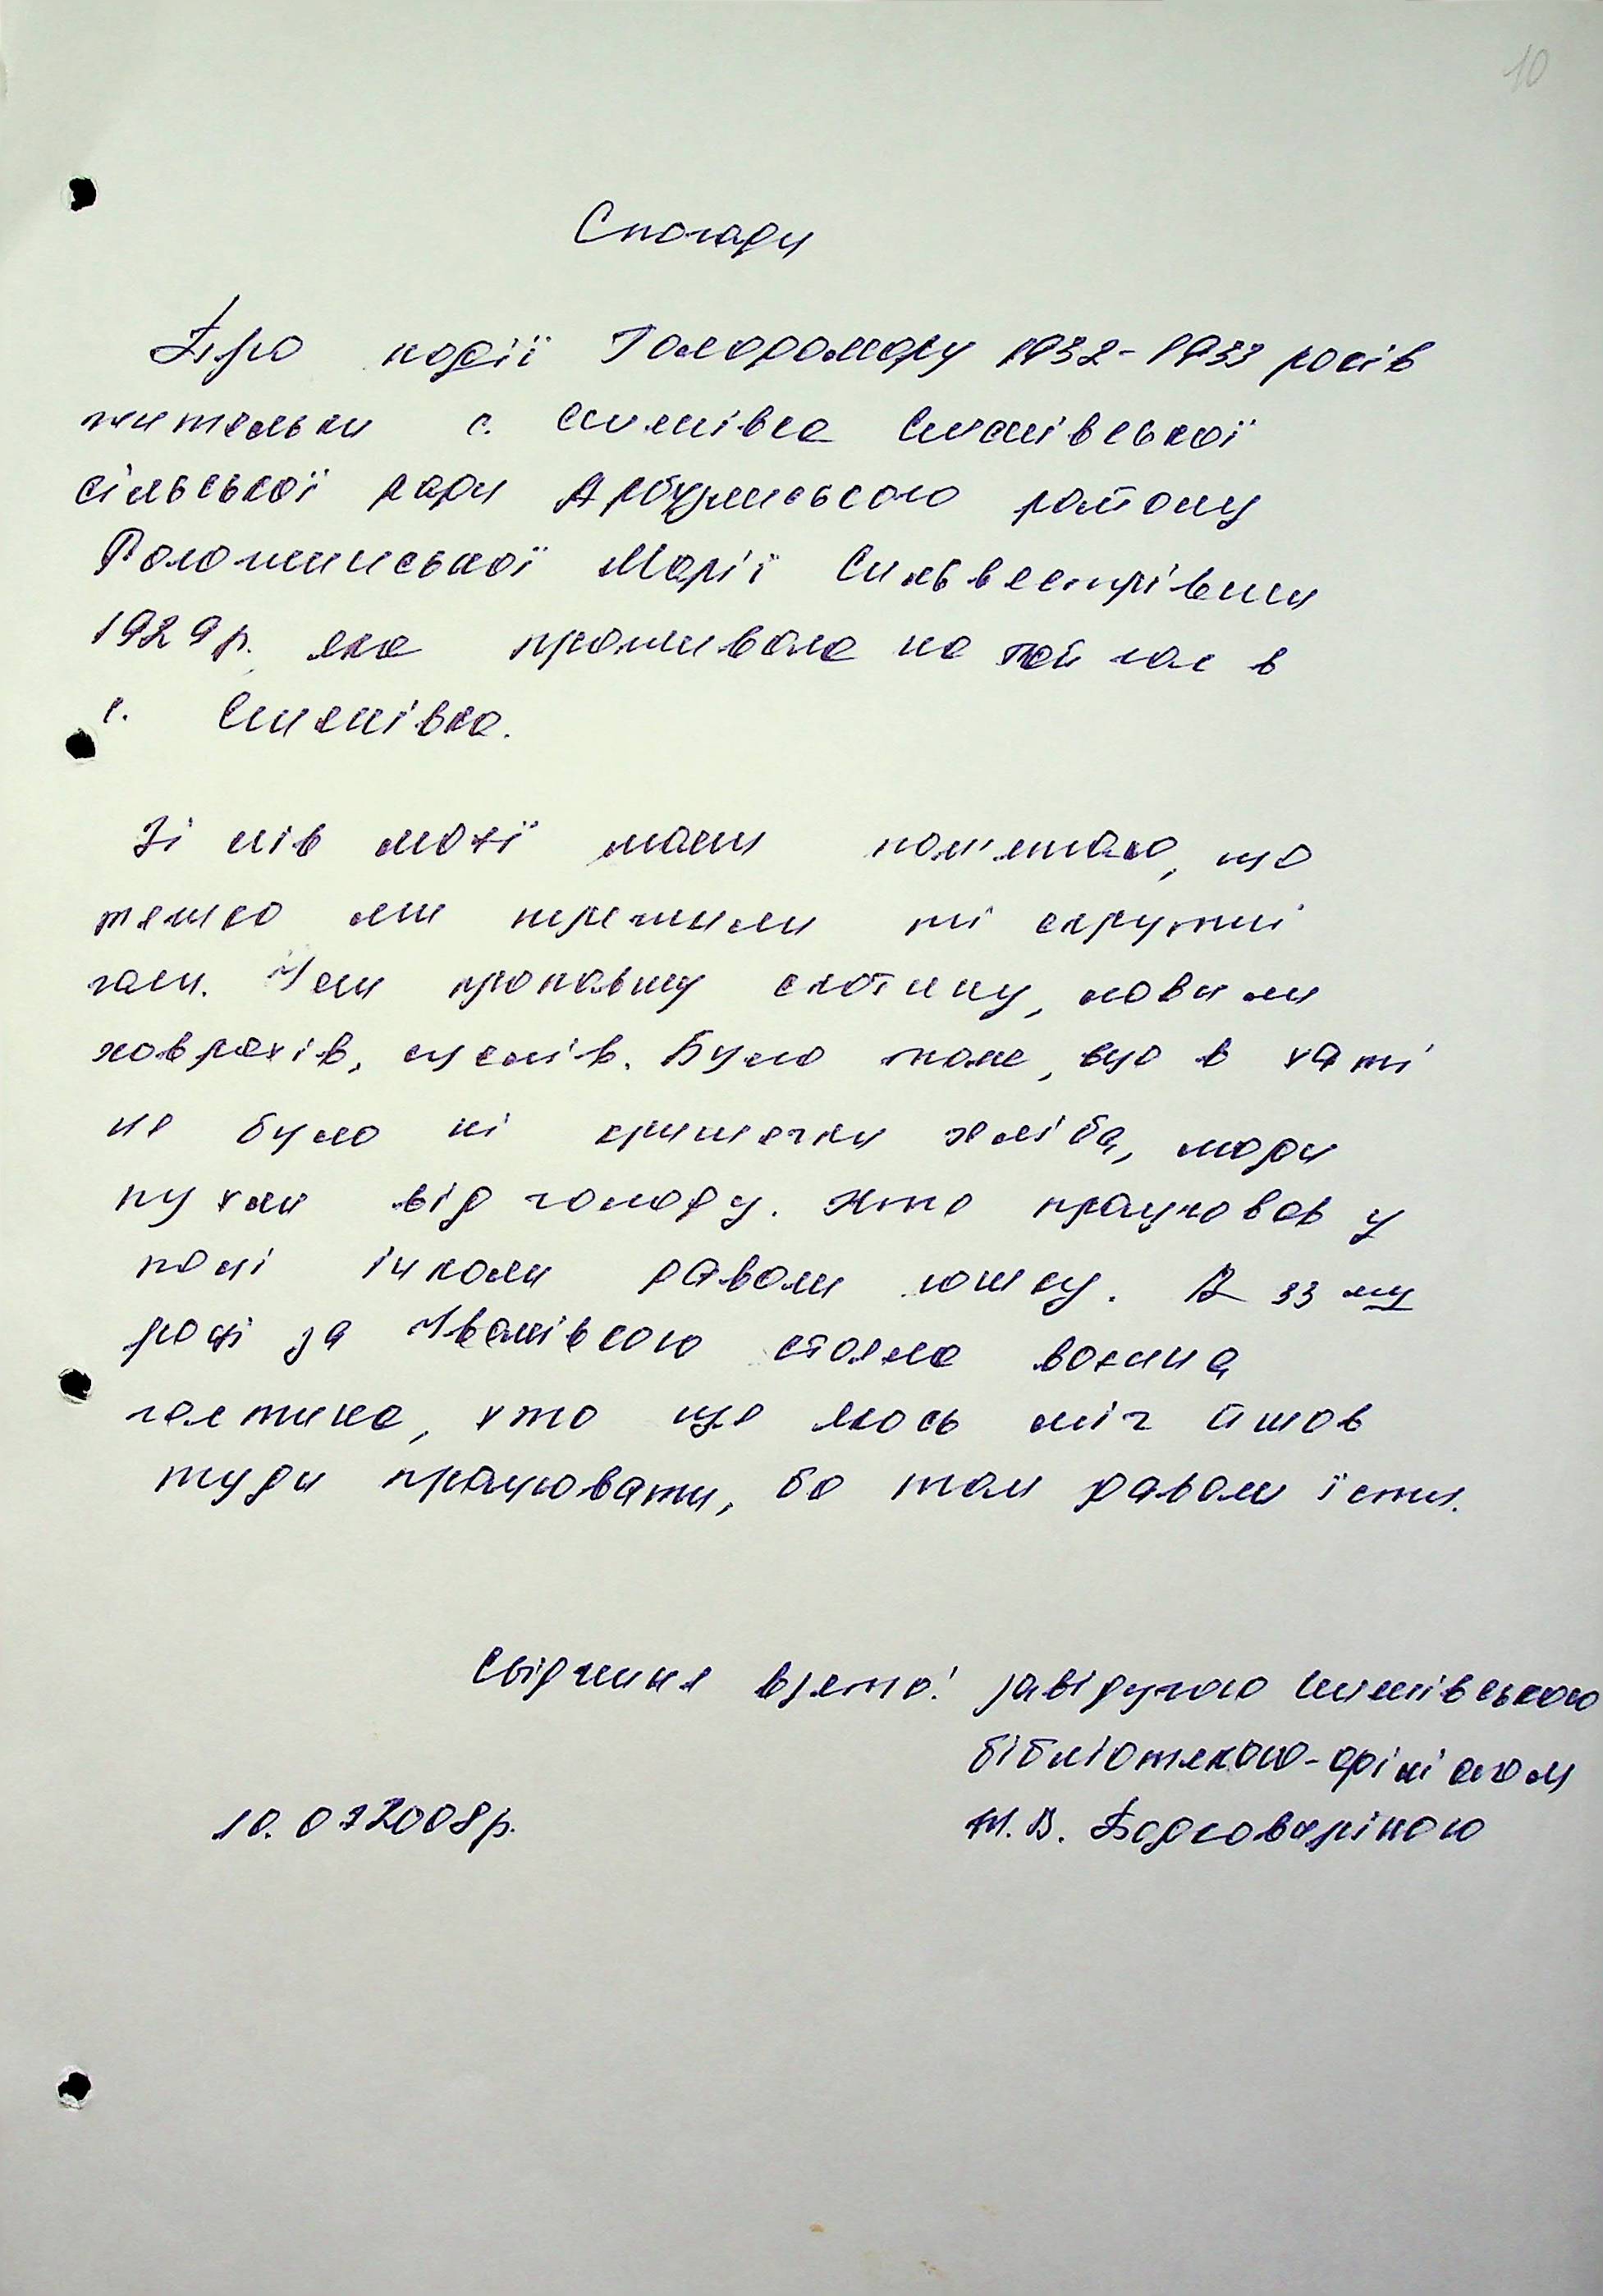 10
Спогади
Про події Голодомору 1932-1933 років
жительки с. Семенівка Семенівської
сільської ради Арбузинського району
Волошинської Марії Сильвестрівни
1929 р. яка проживала на той час в
с. Семенівка.
Зі слів моєї мами пам'ятаю, що
тяжко ми пережили ті скрутні
часи. Їли пропавшу скотину, ловили
ховрахів, сусликів. Було таке, що в хаті
не було ні кришечки хліба, люди
пухли від голоду. Хто працював у
полі інколи давали юшку. В 33 му
році за Іванівкою стояла воєнна
частина, хто ще якось міг йшов
туди працювати, бо там давали їсти.
Свідчення взято: завідуючою Семенівською
бібліотекою-філіалом
10.07.2008р.